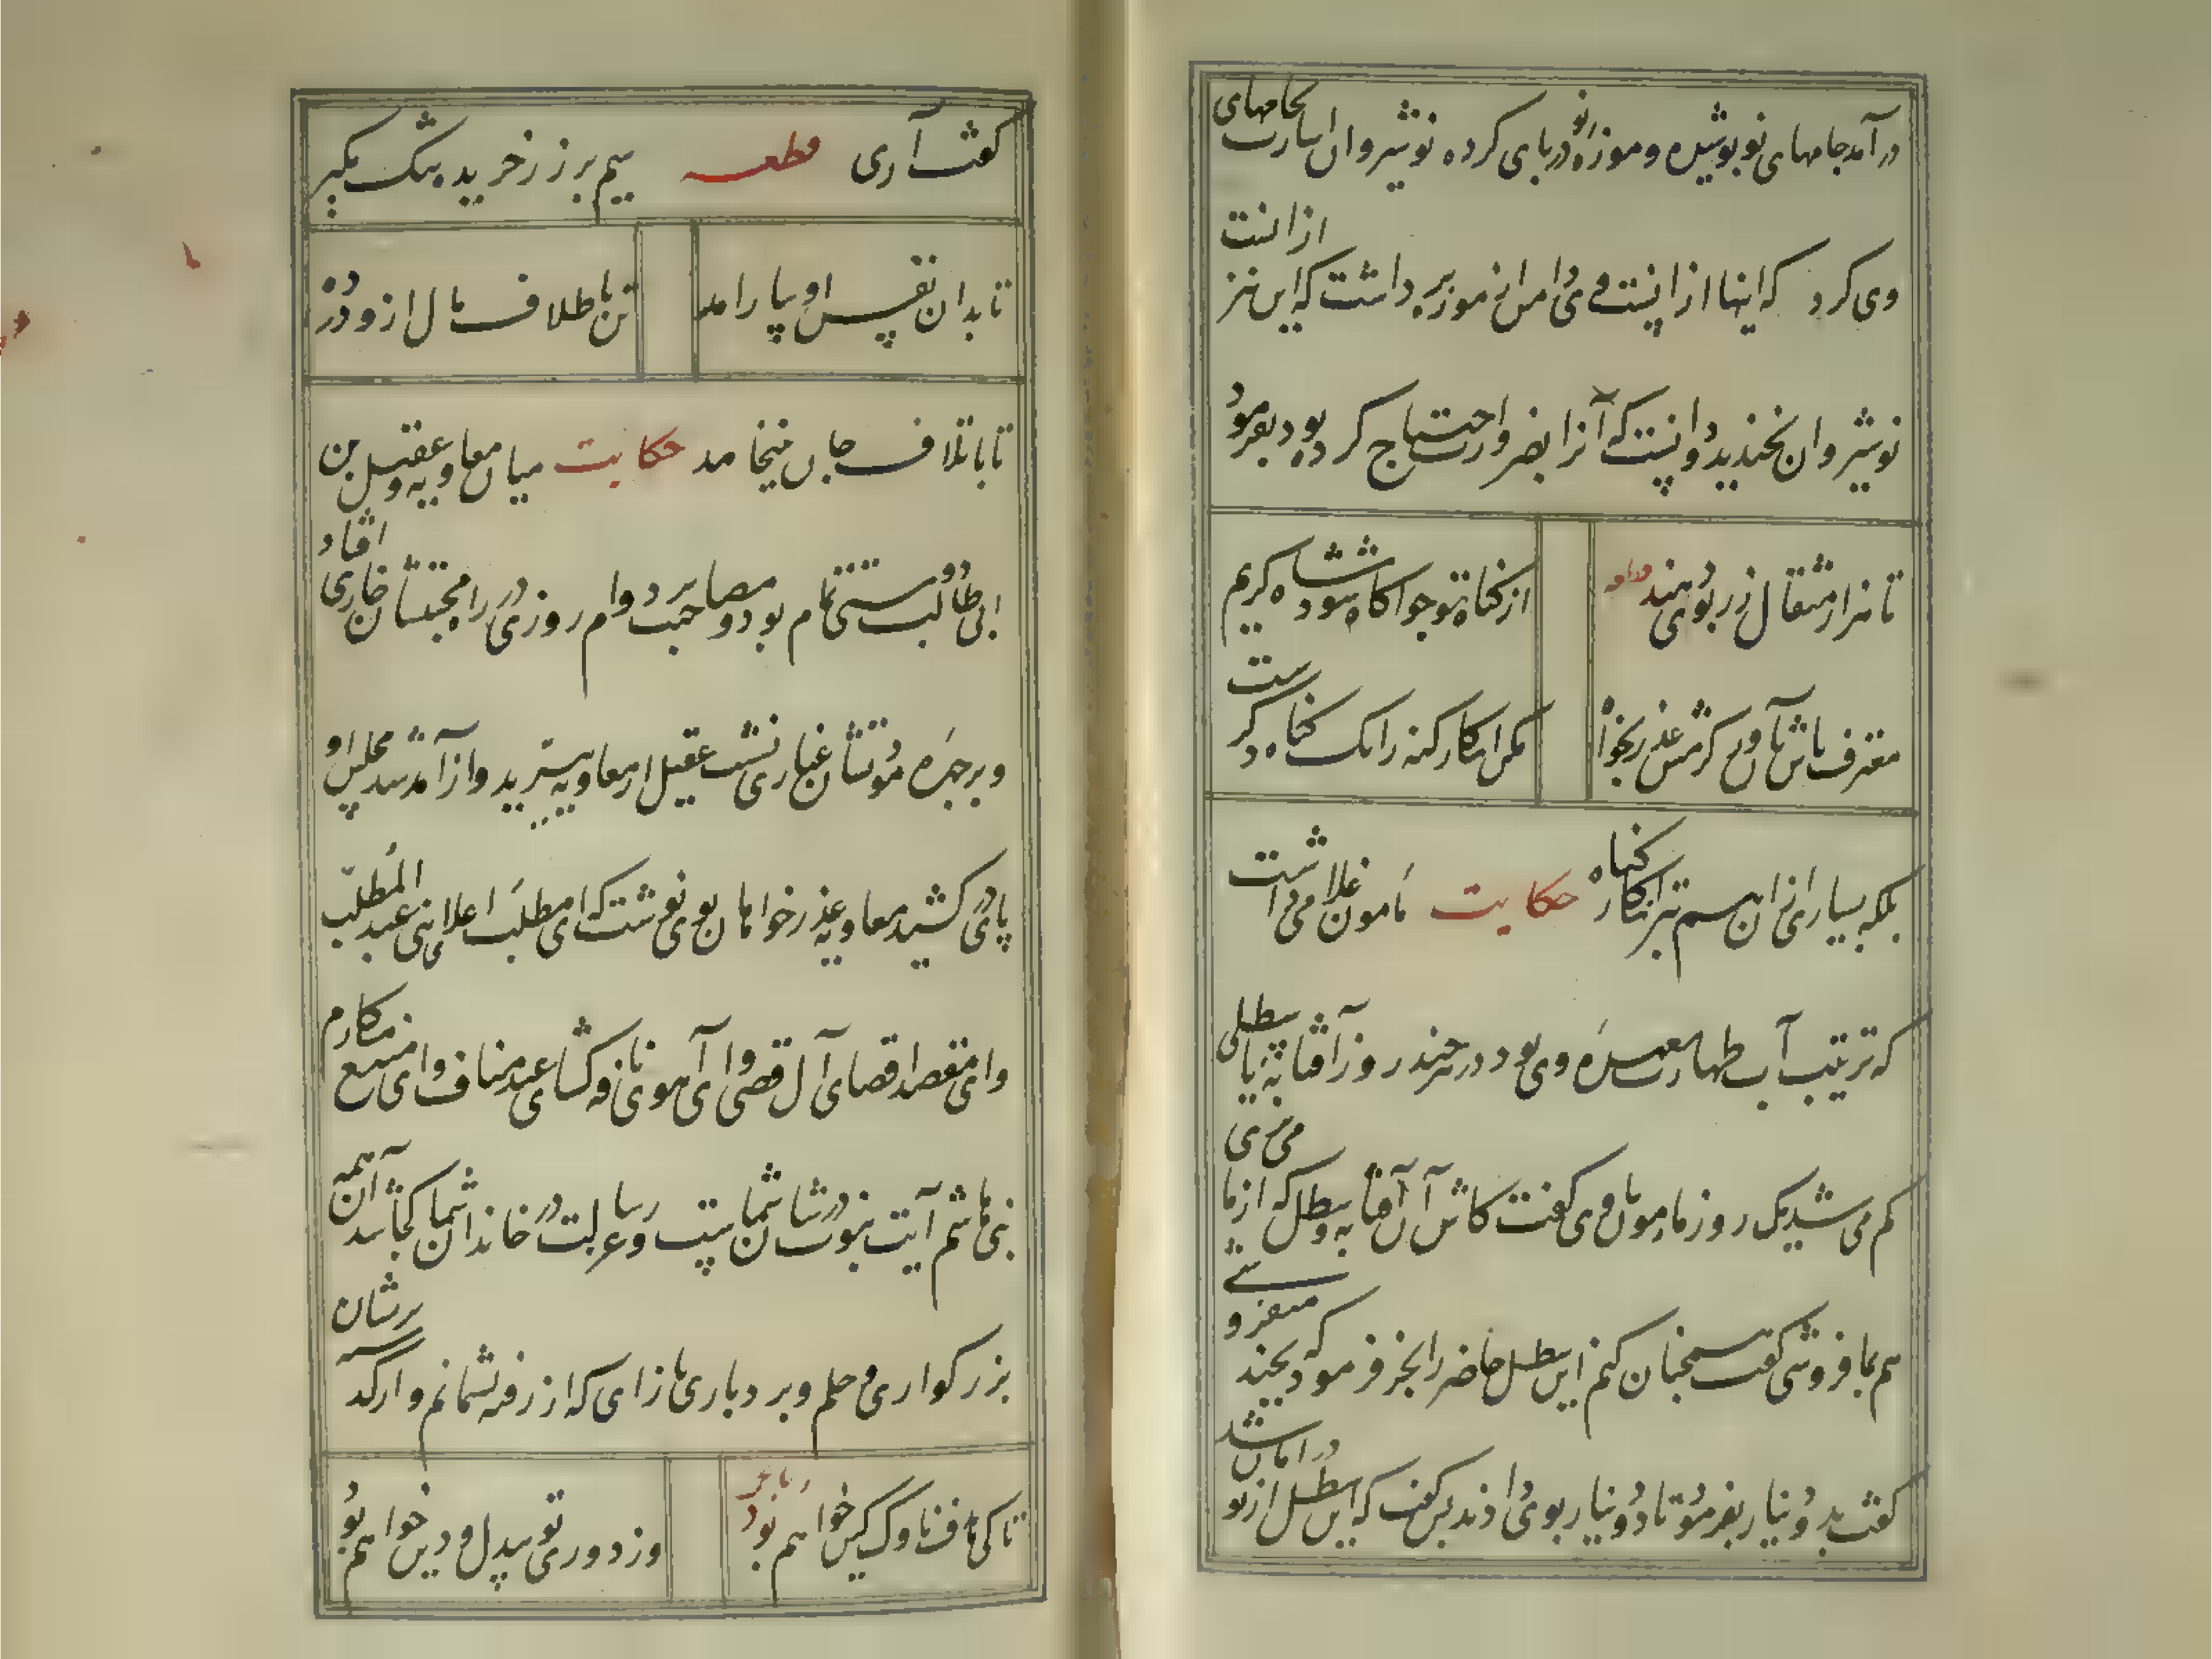 درآمد جامهای نو پوشیده و موزه نو در پای کرده نوشیروان اشارت بجامهای
وی کرد که اینها از اینست وی دامن از موزه برداشت که این نیز از انست
نوشیروان بخندید و دانست که آنرا بضرورت احتیاج کرده بود بفرمود
تا هزار مثقال زر بوی دهند قطعه از گناه تو جو آگاه شود شاه کریم
معترف باش بآن وز کرمش عذر بخواه مکن انکار گنه زانک گناه دگرست
بلکه بسیاری از ان هم بتر انکار گناه حکایت مامون غلامی داشت
که ترتیب آب طهارت بعهده وی بود در هر چند روز آفتابه یا سطلی
کم می شد یک روز مامون با وی گفت کاش آن آفتابه و سطل که از ما می بری
هم بما فروشی گفت همچنان کنم این سطل حاضر را بخر فرمود که بچند میفروشی
گفت بدو دینار بفرمود تا دو دینار بوی دادند پس گفت که این سطل از تو در امان شد
گفت آری قطعه سیم بر زر خریده تنگ مگیر
تا بدان نفس او بیارامد تن باطلاف مال ازو در ده
تا باتلاف جان نینجامد حکایت میان معاویه و عقیل بن
ابی طالب دوستی تمام بود و مصاحبت بر دوام روزی در راه محبتشان خاری افتاد
و بر چهره مودتشان غباری نشست عقیل از معاویه ببرید و از آمد شد مجلس او
پای در کشید معاویه عذر خواهان بوی نوشت که ای مطلب اعلای بنی عبد المطلب
و ای مقصد اقصای آل قصی و ای آهوی نافه گشای عبد مناف و ای منبع مکارم
بنی هاشم آیت نبوت در شان شماست و عز رسالت در خاندان شما کجا شد آن همه
بزرگواری و حلم و بردباری باز آی که از رفته پشیمانم و از گذشته پریشان
تا کی هدف ناوک کین خواهم بود وز دوری تو بیدل و دین خواهم بود